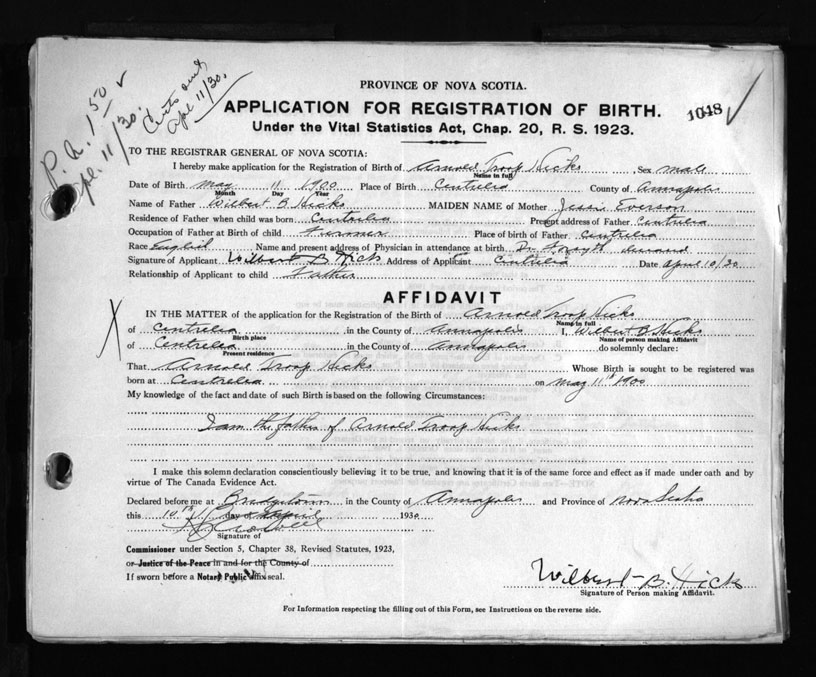 P.A. 1.50 ✓
Apl. 11/30.
Certs and
Apl 11/30.
PROVINCE OF NOVA SCOTIA.
APPLICATION FOR REGISTRATION OF BIRTH.
1048 ✓
Under the Vital Statistics Act, Chap. 20, R. S. 1923.
TO THE REGISTRAR GENERAL OF NOVA SCOTIA:
I hereby make application for the Registration of Birth of Arnold Troop Hicks Sex male
Name in full
Date of Birth May 11 1900 Place of Birth Centrelea County of Annapolis
Month Day Year
Name of Father Wilbert B Hicks MAIDEN NAME of Mother Jessie Everson
Residence of Father when child was born Centrelea Present address of Father Centrelea
Occupation of Father at Birth of child Farmer Place of birth of Father Centrelea
Race English Name and present address of Physician in attendance at birth Dr
Signature of Applicant Wilbert B Hicks Address of Applicant Centrelea Date April 10/30
Relationship of Applicant to child Father
AFFIDAVIT
IN THE MATTER of the application for the Registration of the Birth of Arnold Troop Hicks
Name in full
of Centrelea in the County of Annapolis I, Wilbert B Hicks
Birth place Name of person making Affidavit
of Centrelea in the County of Annapolis do solemnly declare:
Present residence
That Arnold Troop Hicks Whose Birth is sought to be registered was
born at Centrelea on May 11th 1900
My knowledge of the fact and date of such Birth is based on the following Circumstances:
I am the father of Arnold Troop Hicks
I make this solemn declaration conscientiously believing it to be true, and knowing that it is of the same force and effect as if made under oath and by
virtue of The Canada Evidence Act.
Declared before me at Bridgetown in the County of Annapolis and Province of Nova Scotia
this 10th day of April 1930
Signature of
Commissioner under Section 5, Chapter 38, Revised Statutes, 1923,
or Justice of the Peace in and for the County of
If sworn before a Notary Public affix seal.
Wilbert B. Hicks
Signature of Person making Affidavit.
For Information respecting the filling out of this Form, see Instructions on the reverse side.